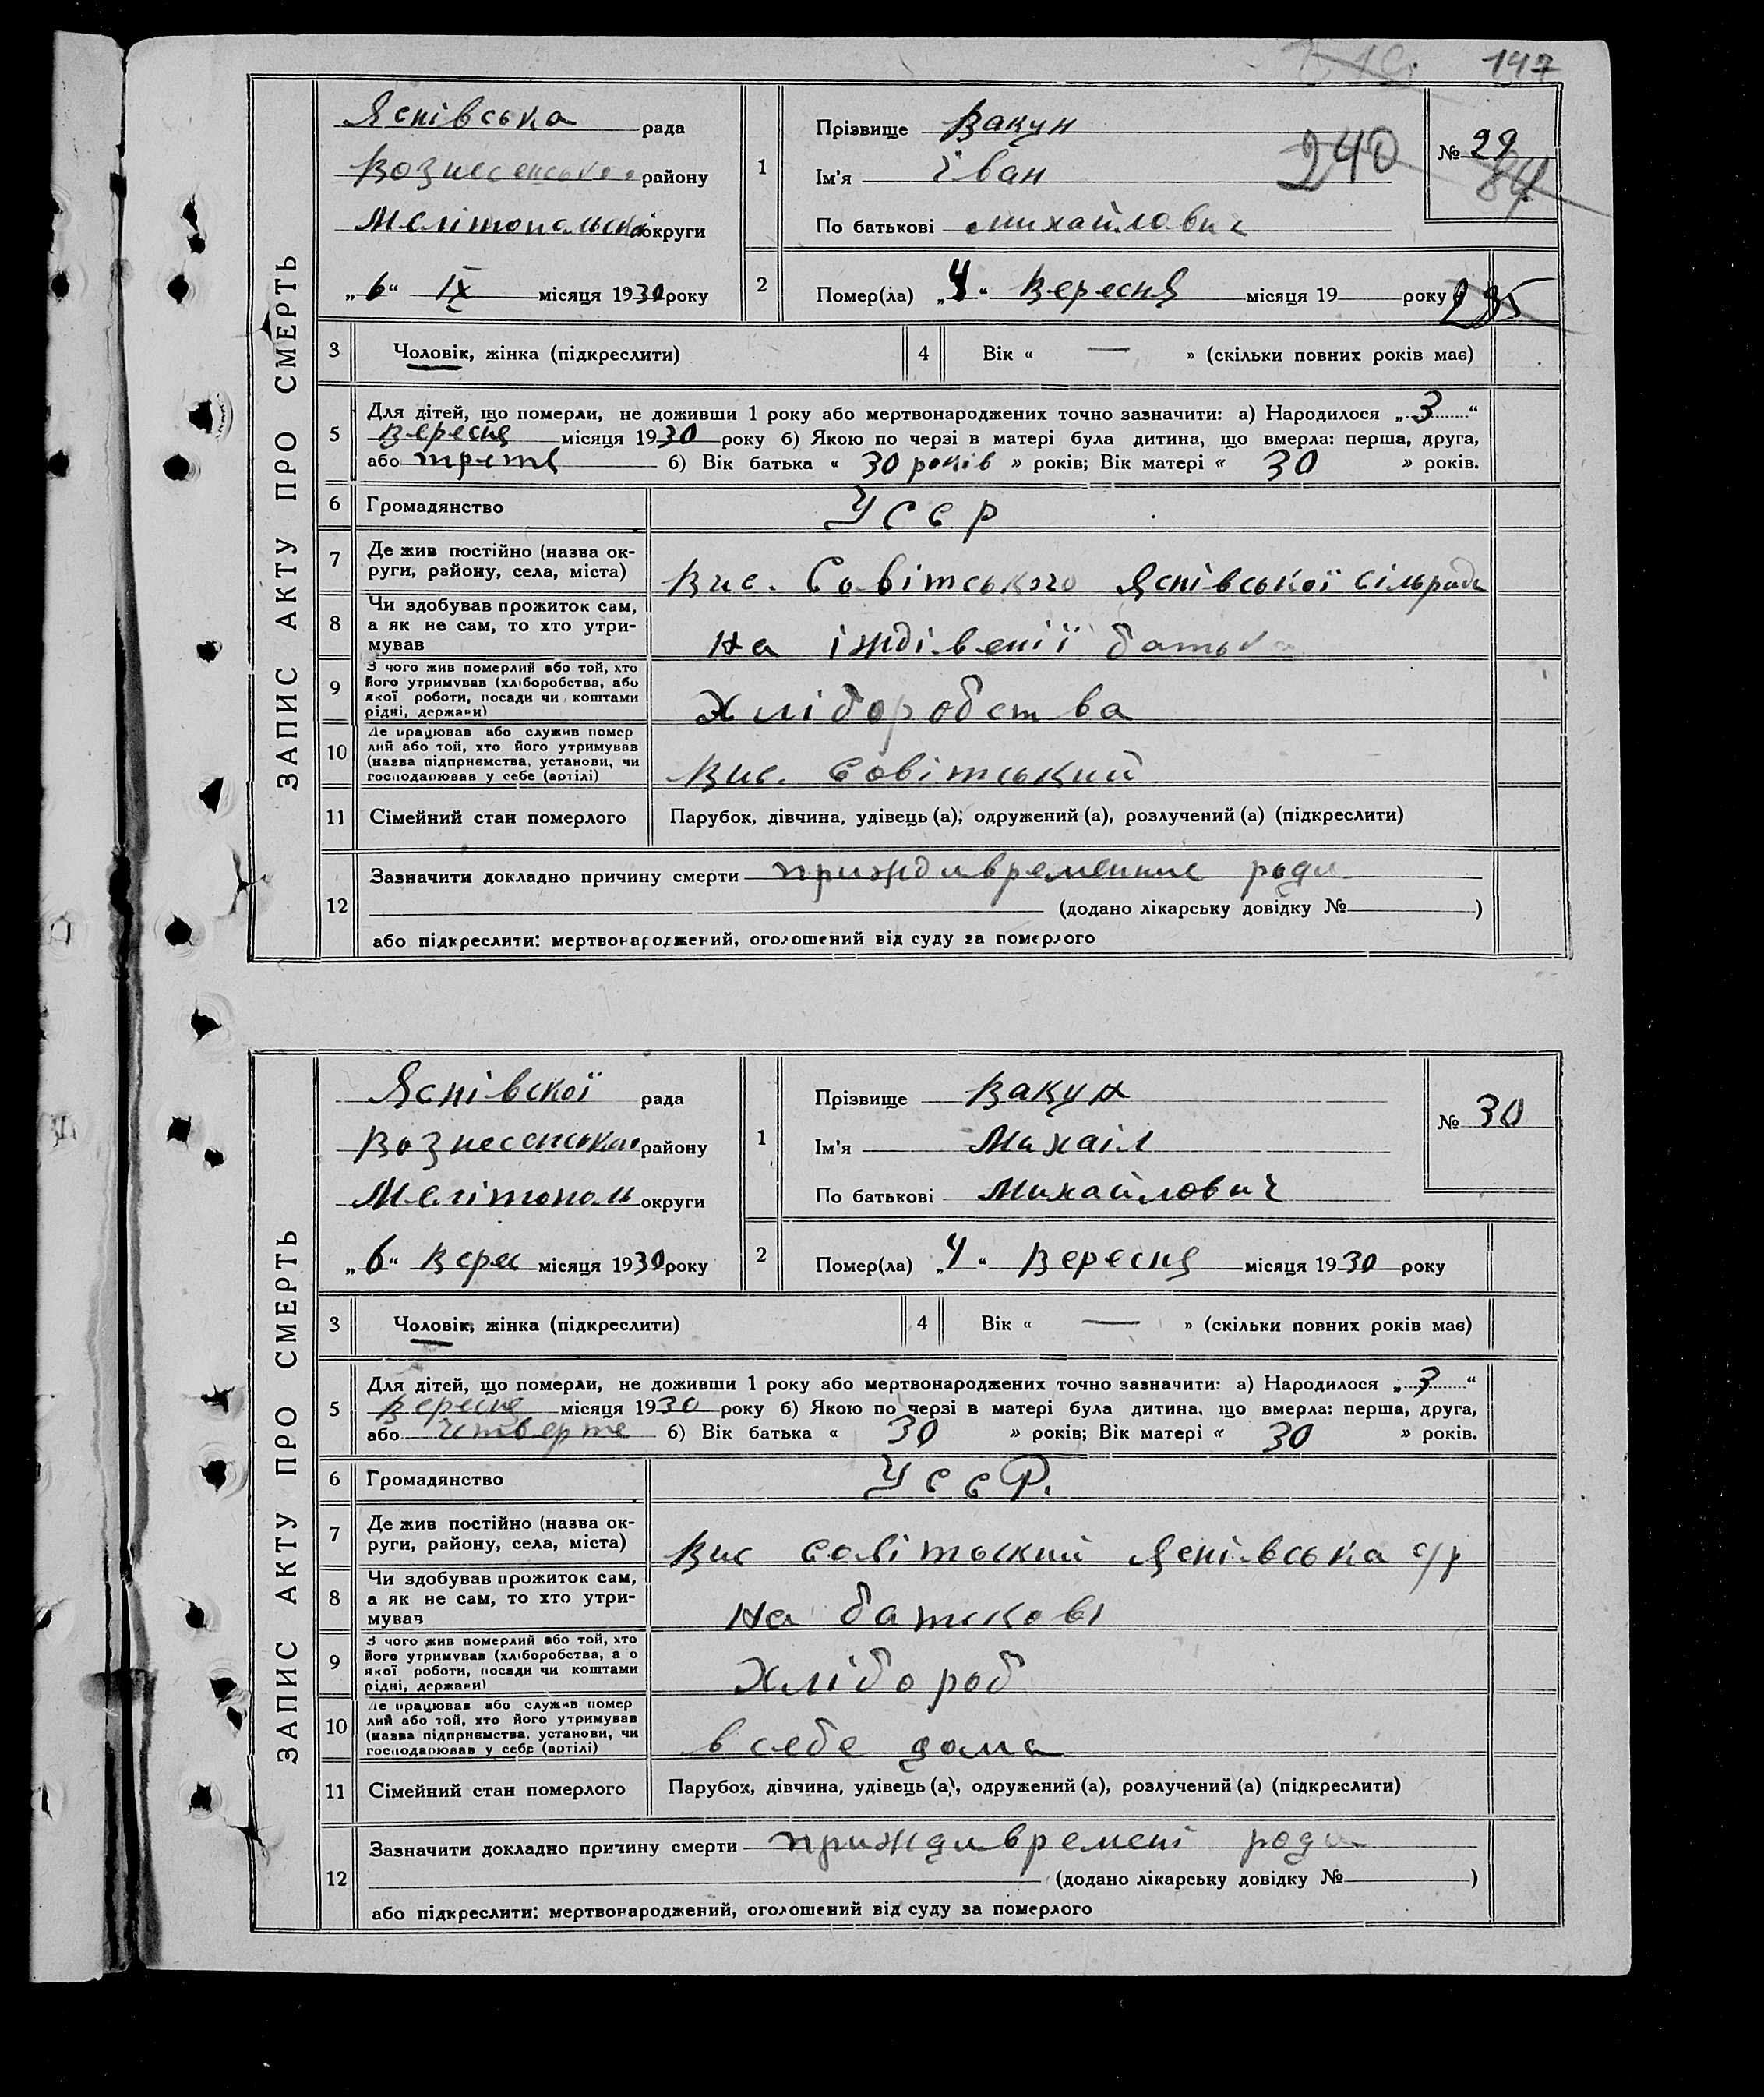 197
ЗАПИС АКТУ ПРО СМЕРТЬ
Яспівська рада
Вознесенського району
Мелітопольскої округи
„6“ IX місяця 1930 року
1
Прізвище Вакун
Ім'я Іван
По батькові михайлович
240
№ 29
84
2
Помер(ла) „4“ Вересня місяця 19 року
235
3
Чоловік, жінка (підкреслити)
4
Вік « — » (скільки повних років має)
5
Для дітей, що померли, не доживши 1 року або мертвонароджених точно зазначити: а) Народилося „3“
Вересня місяця 1930 року б) Якою по черзі в матері була дитина, що вмерла: перша, друга,
або третя б) Вік батька « 30 років » років; Вік матері « 30 » років.
6
Громадянство
УССР
7
Де жив постійно (назва ок-
руги, району, села, міста)
Вис. Совітського Яспівської сільради
8
Чи здобував прожиток сам,
а як не сам, то хто утри-
мував
на іждівенії батька
9
З чого жив померлий або той, хто
його утримував (хліборобства, або
якої роботи, посади чи коштами
рідні, держави)
Хліборобства
10
Де працював або служив помер
лий або той, хто його утримував
(назва підприємства, установи, чи
господарював у себе (артілі)
Вис. Совітський
11
Сімейний стан померлого
Парубок, дівчина, удівець (а); одружений (а), розлучений (а) (підкреслити)
12
Зазначити докладно причину смерти приждивременние роди
(додано лікарську довідку № )
або підкреслити: мертвонароджений, оголошений від суду за померлого
ЗАПИС АКТУ ПРО СМЕРТЬ
Яспівскої рада
Вознесенського району
Мелітополь округи
„6“ Верес місяця 1930 року
1
Прізвище Вакун
Ім'я Михаіл
По батькові Михайлович
№ 30
2
Помер(ла) „4“ Вересня місяця 1930 року
3
Чоловік, жінка (підкреслити)
4
Вік « — » (скільки повних років має)
5
Для дітей, що померли, не доживши 1 року або мертвонароджених точно зазначити: а) Народилося „3“
Вересня місяця 1930 року б) Якою по черзі в матері була дитина, що вмерла: перша, друга,
або четверте б) Вік батька « 30 » років; Вік матері « 30 » років.
6
Громадянство
УССР.
7
Де жив постійно (назва ок-
руги, району, села, міста)
Вис Совітський Яспівська с/р
8
Чи здобував прожиток сам,
а як не сам, то хто утри-
мував
на батькові
9
З чого жив померлий або той, хто
його утримував (хліборобства, а о
якої роботи, посади чи коштами
рідні, держави)
Хлібороб
10
Де працював або служив помер
лий або той, хто його утримував
(назва підприємства, установи, чи
господарював у себе (артілі)
в себе дома
11
Сімейний стан померлого
Парубок, дівчина, удівець (а), одружений (а), розлучений (а) (підкреслити)
12
Зазначити докладно причину смерти приждивремені роди
(додано лікарську довідку № )
або підкреслити: мертвонароджений, оголошений від суду за померлого